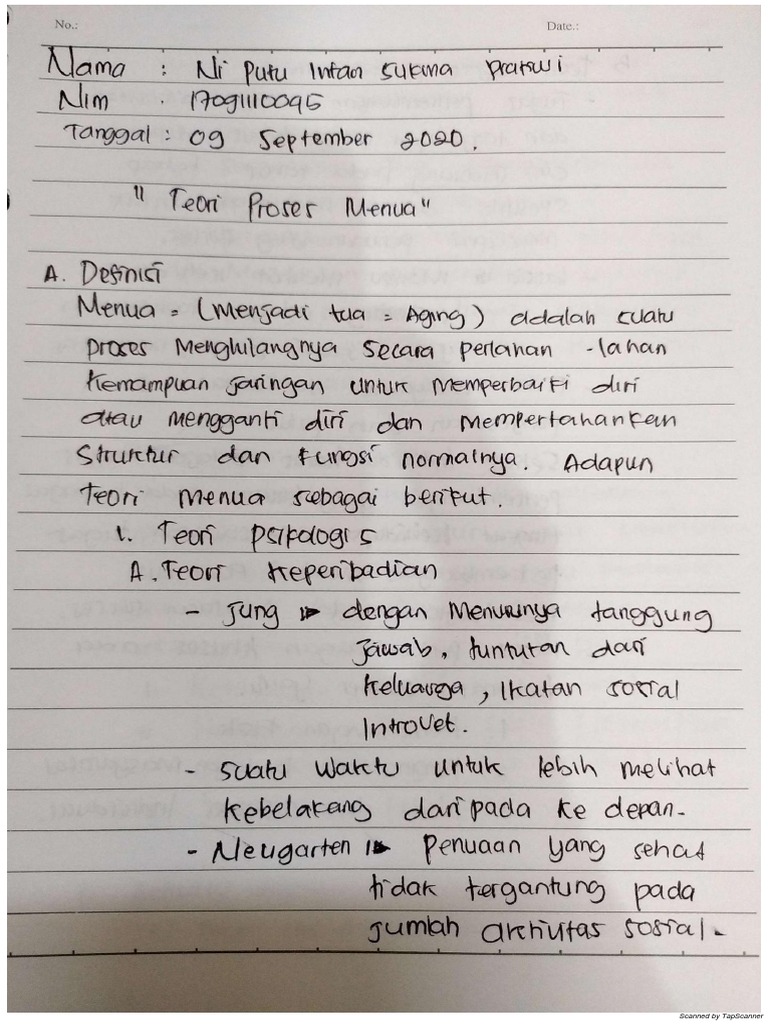 No.:
Date.:
Nama : Ni Putu Intan Sukma Pratiwi
Nim : 17091110095
Tanggal : 09 September 2020.
"Teori Proses Menua"
A. Definisi
Menua = (Menjadi tua = Aging) adalah suatu
proses Menghilangnya secara perlahan - lahan
Kemampuan jaringan untuk memperbaiki diri
atau mengganti diri dan mempertahankan
struktur dan fungsi normalnya. Adapun
Teori menua sebagai berikut.
1. Teori psikologis
A. Teori Keperibadian
- Jung dengan Menurunnya tanggung
jawab, tuntutan dari
keluarga, Ikatan sosial
Introvet.
- suatu waktu untuk lebih melihat
kebelakang daripada ke depan.
- Neugarten penuaan yang sehat
tidak tergantung pada
jumlah aktivitas sosial.
Scanned by TapScanner